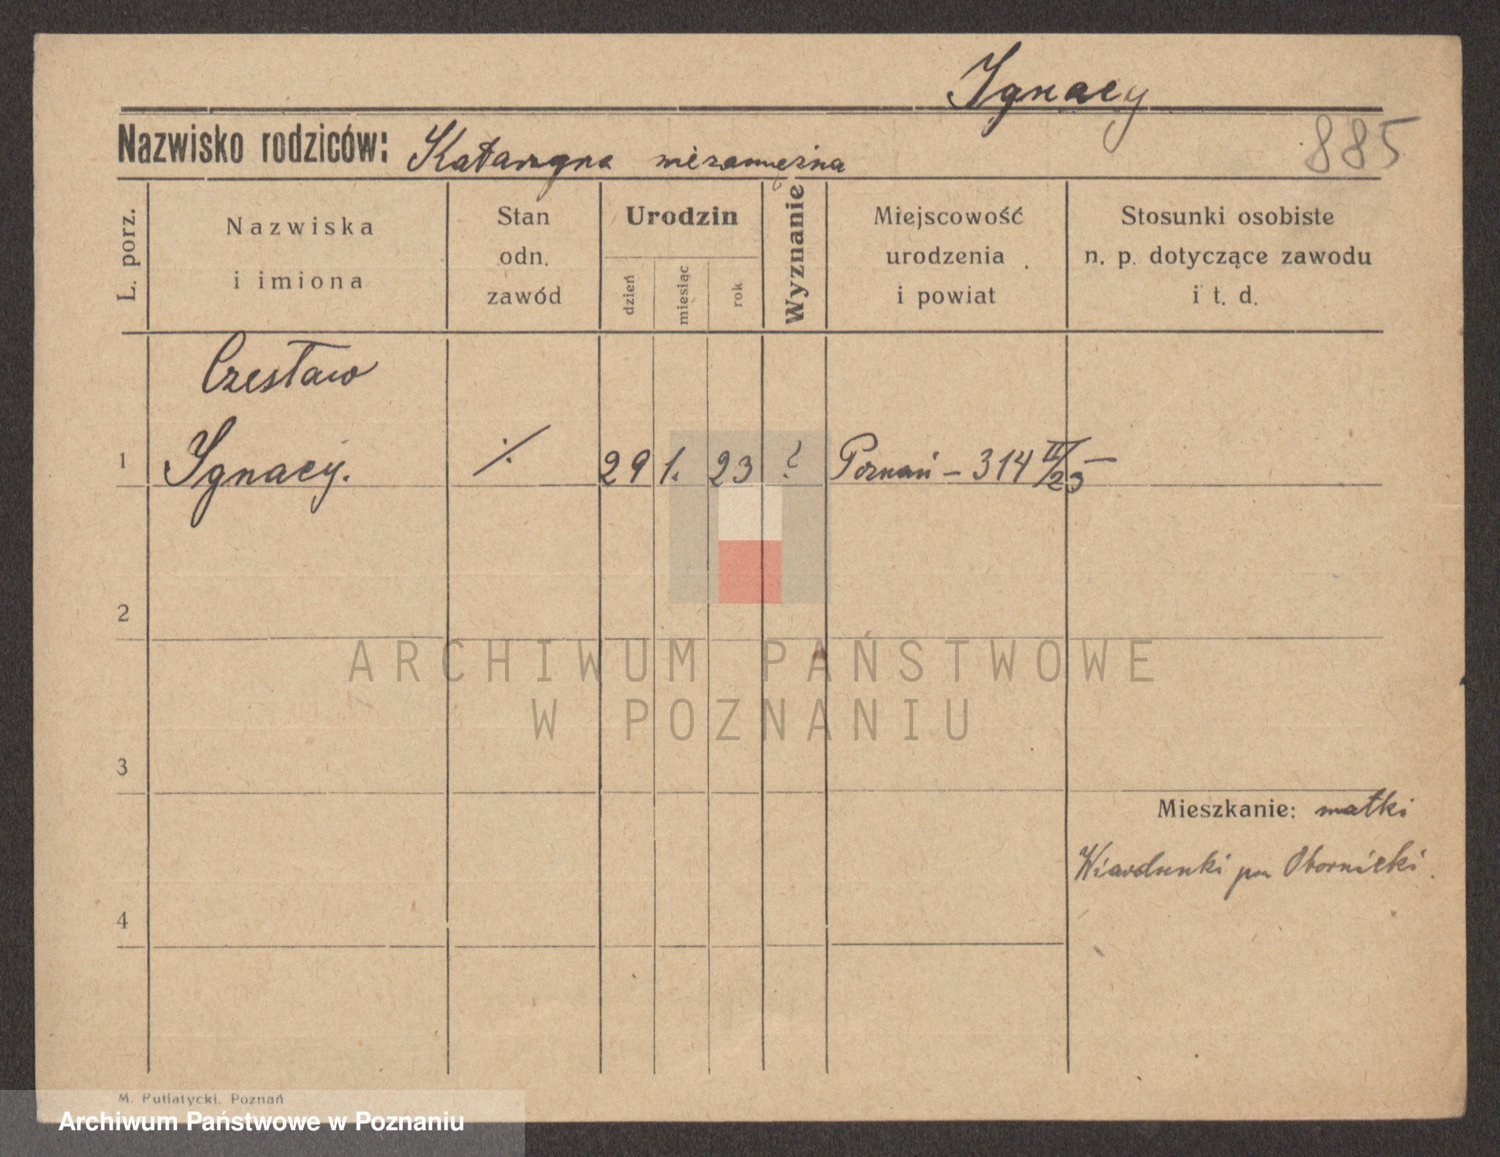 Ignacy
885
Nazwisko rodziców: Katarzyna niezamężna
L. porz.
Nazwiska
i imiona
Stan
odn.
zawód
Urodzin
dzień
miesiąc
rok
Wyznanie
Miejscowość
urodzenia
i powiat
Stosunki osobiste
n. p. dotyczące zawodu
i t. d.
Czesław
1 Ignacy. ·/· 29 1. 23 ? Poznań – 314 II/23 –
2
ARCHIWUM PAŃSTWOWE
W POZNANIU
3
Mieszkanie: matki
Wiardunki pow Obornicki.
4
M. Putiatycki, Poznań
Archiwum Państwowe w Poznaniu